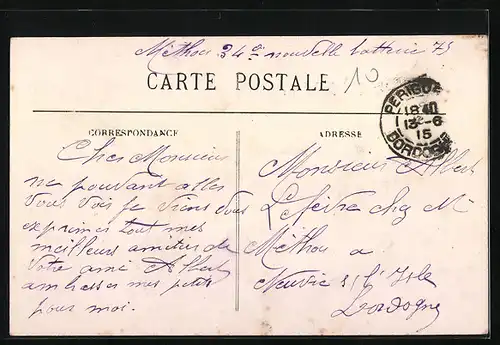 Méthou 34e nouvelle batterie 75
10
CARTE POSTALE
PERIGUEUX
18 40
13 - 6
15
DORDOGNE
CORRESPONDANCE
ADRESSE
Cher Monsieur
ne pouvant aller
vous voir je viens vous
exprimer tout mes
meilleurs amitiés de
votre ami Albert
embrasser mes petits
pour moi.
Monsieur Albert
Lefèvre chez Mr
Méthou a
Neuvic s/ l'Isle
Dordogne